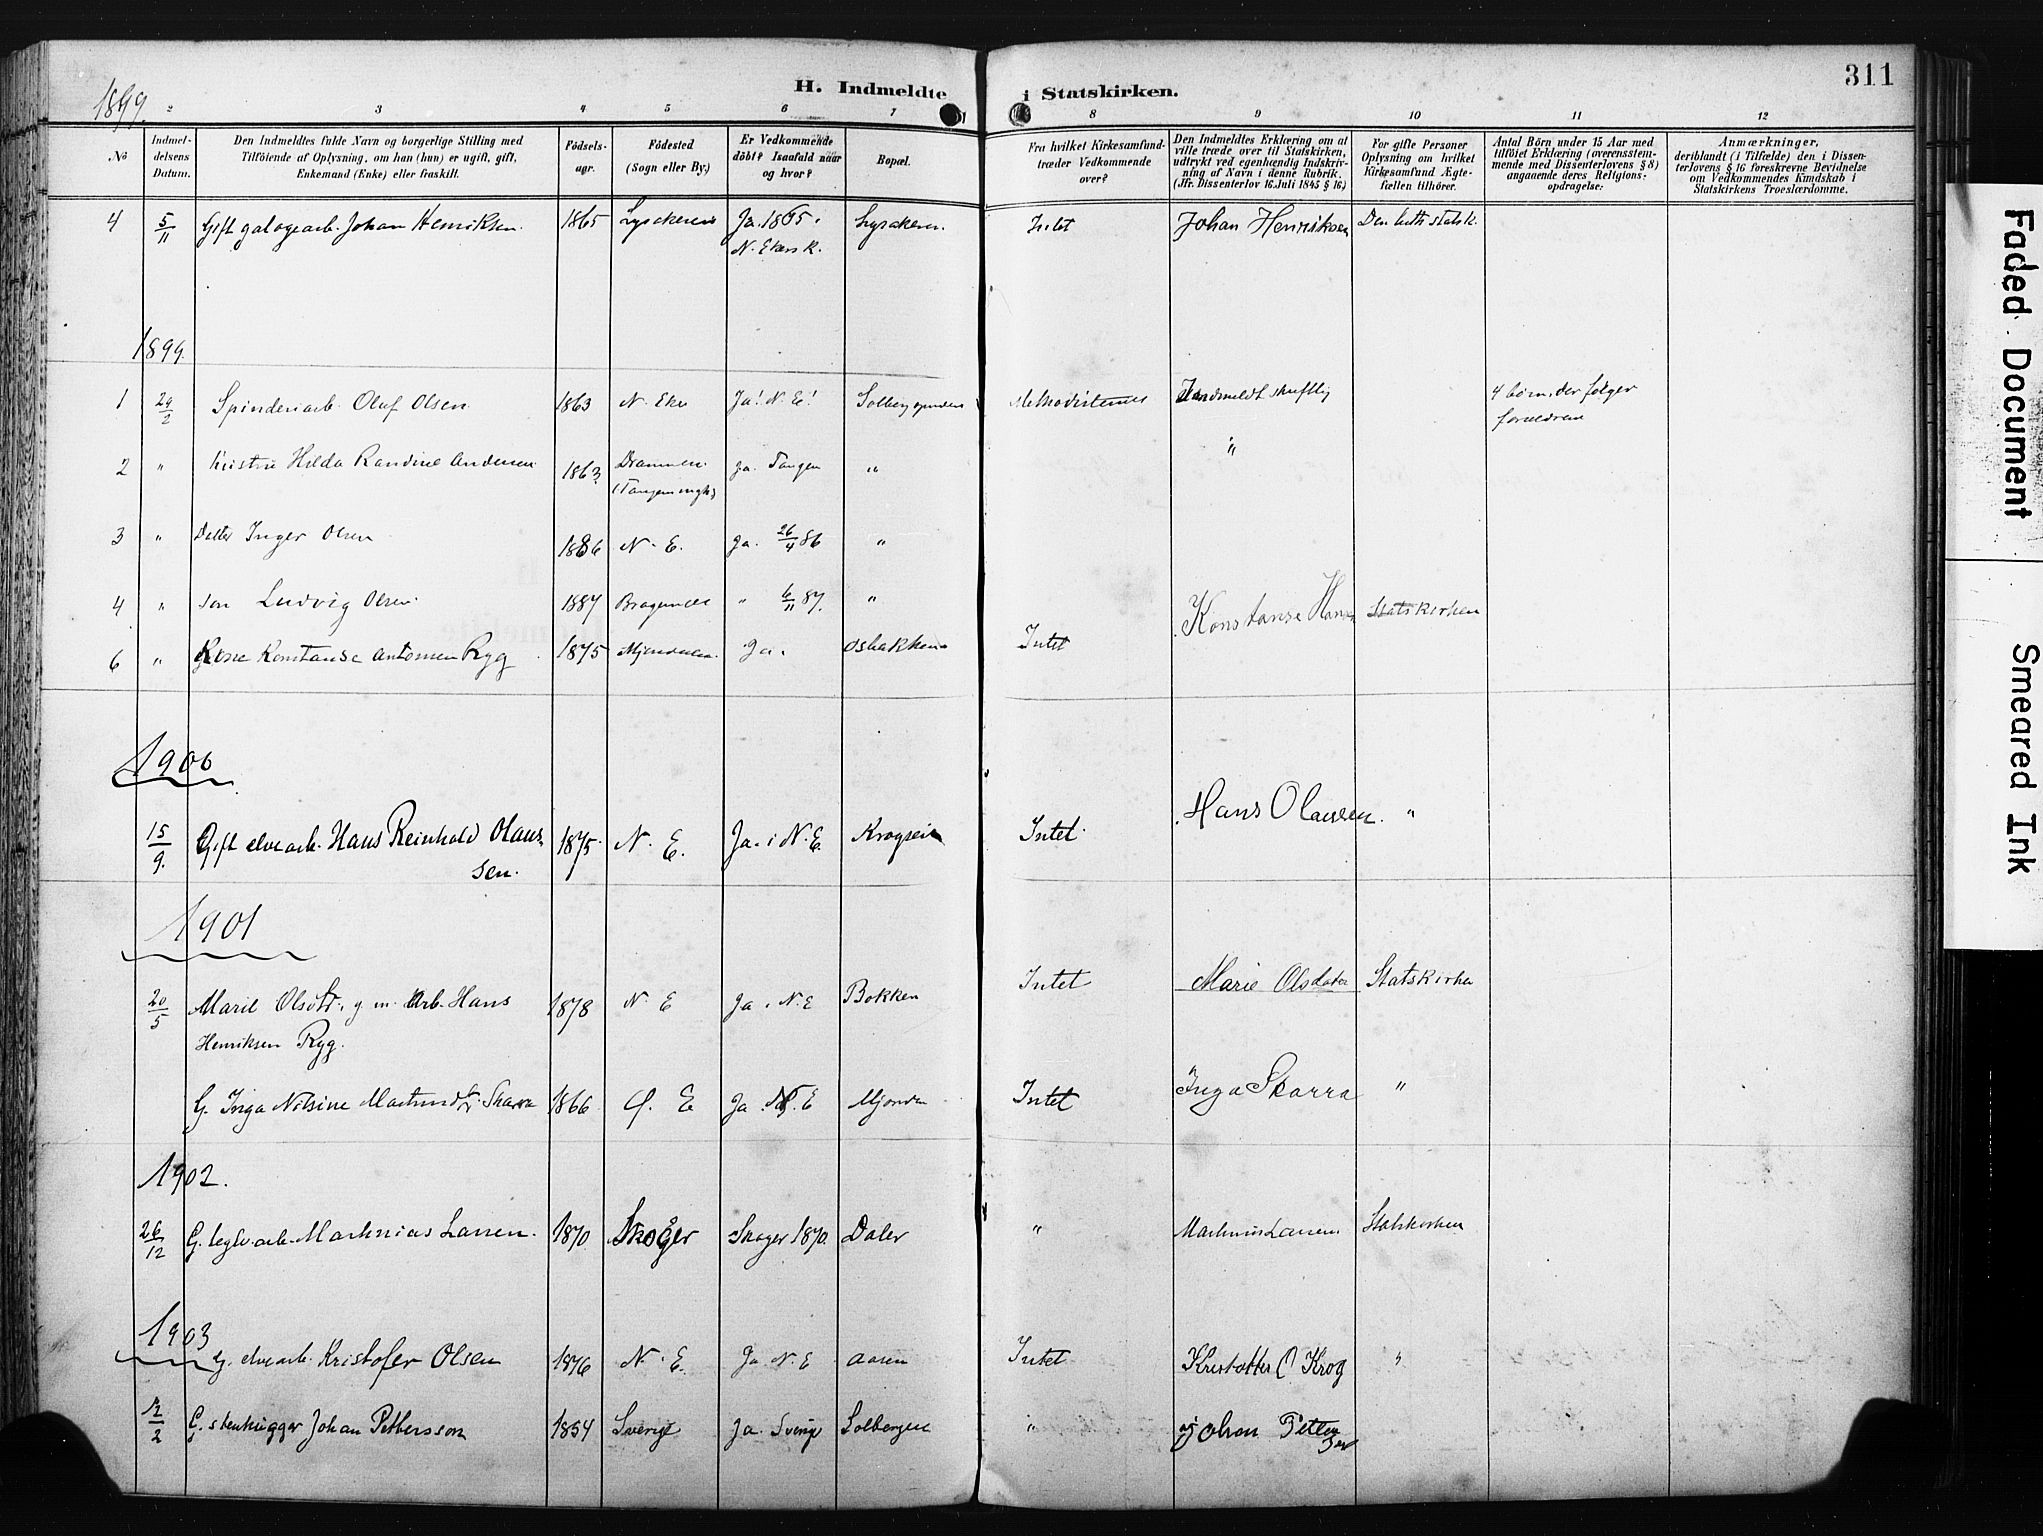 311
H. Indmeldte i Statskirken.
1899.
2 3 4 5 6 7 8 9 10 11 12
No
Indmel-
delsens
Datum.
Den Indmeldtes fulde Navn og borgerlige Stilling med
Tilföiende af Oplysning, om han (hun) er ugift, gift,
Enkemand (Enke) eller fraskilt.
Födsels-
aar.
Födested
(Sogn eller By.)
Er Vedkommende
döbt? Isaafald naar
og hvor?
Bopæl.
Fra hvilket Kirkesamfund
træder Vedkommende
over?
Den Indmeldtes Erklæring om at
ville træde over til Statskirken,
udtrykt ved egenhændig Indskriv-
ning af Navn i denne Rubrik.
(Jfr. Dissenterlov 16. Juli 1845 § 16)
For gifte Personer
Oplysning om hvilket
Kirkesamfund Ægte-
fællen tilhörer.
Antal Börn under 15 Aar med
tilföiet Erklæring (overensstem-
mende med Dissenterlovens § 8)
angaaende deres Religions-
opdragelse:
Anmærkninger,
deriblandt (i Tilfælde) den i Dissen-
terlovens § 16 foreskrevne Bevidnelse
om Vedkommendes Kundskab i
Statskirkens Troeslærdomme.
4 5/11 Gift galogearb. Johan Henriksen. 1865 Lysakeren Ja. 1865 i Lysakeren. Intet Johan Henriksen Den luth statsk.
N. Ekers k.
1899.
1 24/2 Spinderiarb. Oluf Olsen 1863 N. Eker Ja! N. E! Solberg spinderi Methodisterne Indmeldt skriftlig 4 börn, der fölger
forældrene
2 " Hustru Hilda Randine Andersen 1863 Drammen Ja. Tangen " "
3 " Datter Inger Olsen 1886 N. E. Ja. 26/4 86 "
4 " Sön Ludvig Olsen 1887 Bragernes " 6/11 87. "
6 " Kone Konstanse Antonsen Ryg 1875 Mjöndalen Ja. Osbakken Intet Konstanse Hansen Statskirken
1900
15/9. Gift elvearb. Hans Reinhold Olaus- 1875 N. E. Ja. i N. E. Intet Hans Olausen. "
sen.
1901
20/5 Marie Olsdtr. g. m. Arb. Hans 1878 N. E Ja i N. E Bakken Intet Marie Olsdater Statskirken
Henriksen Ryg.
G. Inga Nilsine Skarra 1866 Ø. E Ja. N. E Mjöndn Intet Inga Skarra "
1902.
26/12 G. teglv.arb. Martinius Larsen. 1870 Skoger Skoger 1870. Daler " Martinius Larsen Statskirken
1903
G. elvearb. Kristofer Olsen 1876 N. E. Ja N. E Aasen Intet Kristoffer O Krog "
12/2 G. stenhugger Johan Pettersson 1854 Sverige Ja. Sverige Solbergen " Johan Petter
son
Faded Document
Smeared Ink